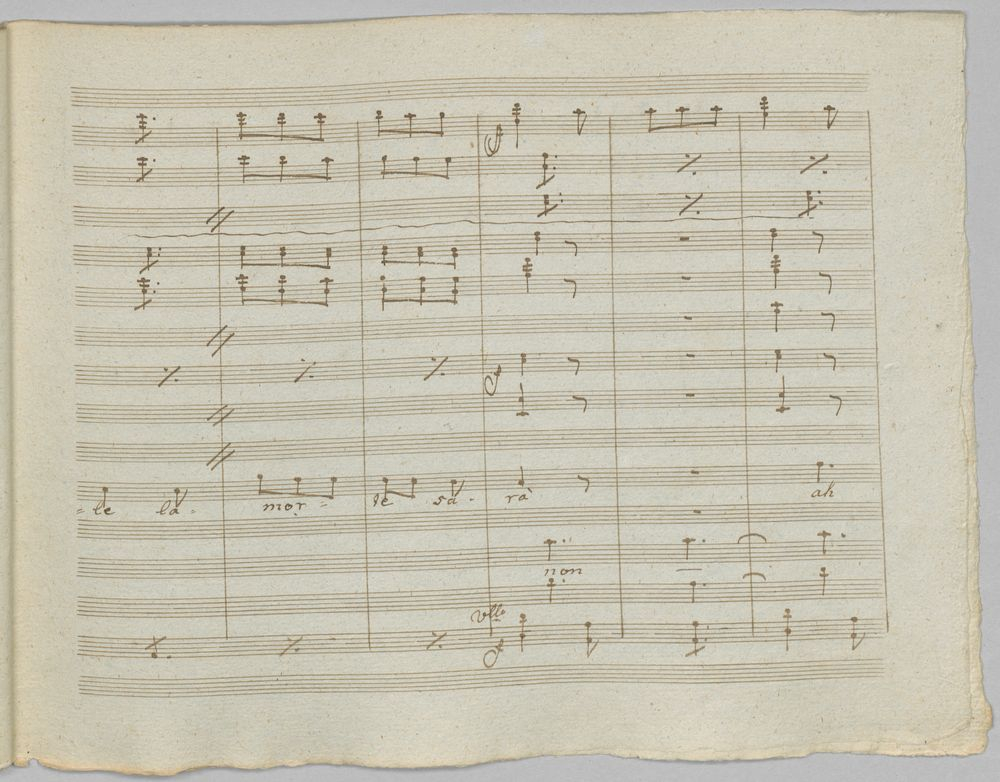 =le la= mor= te sa= rà ah
non
Vlli